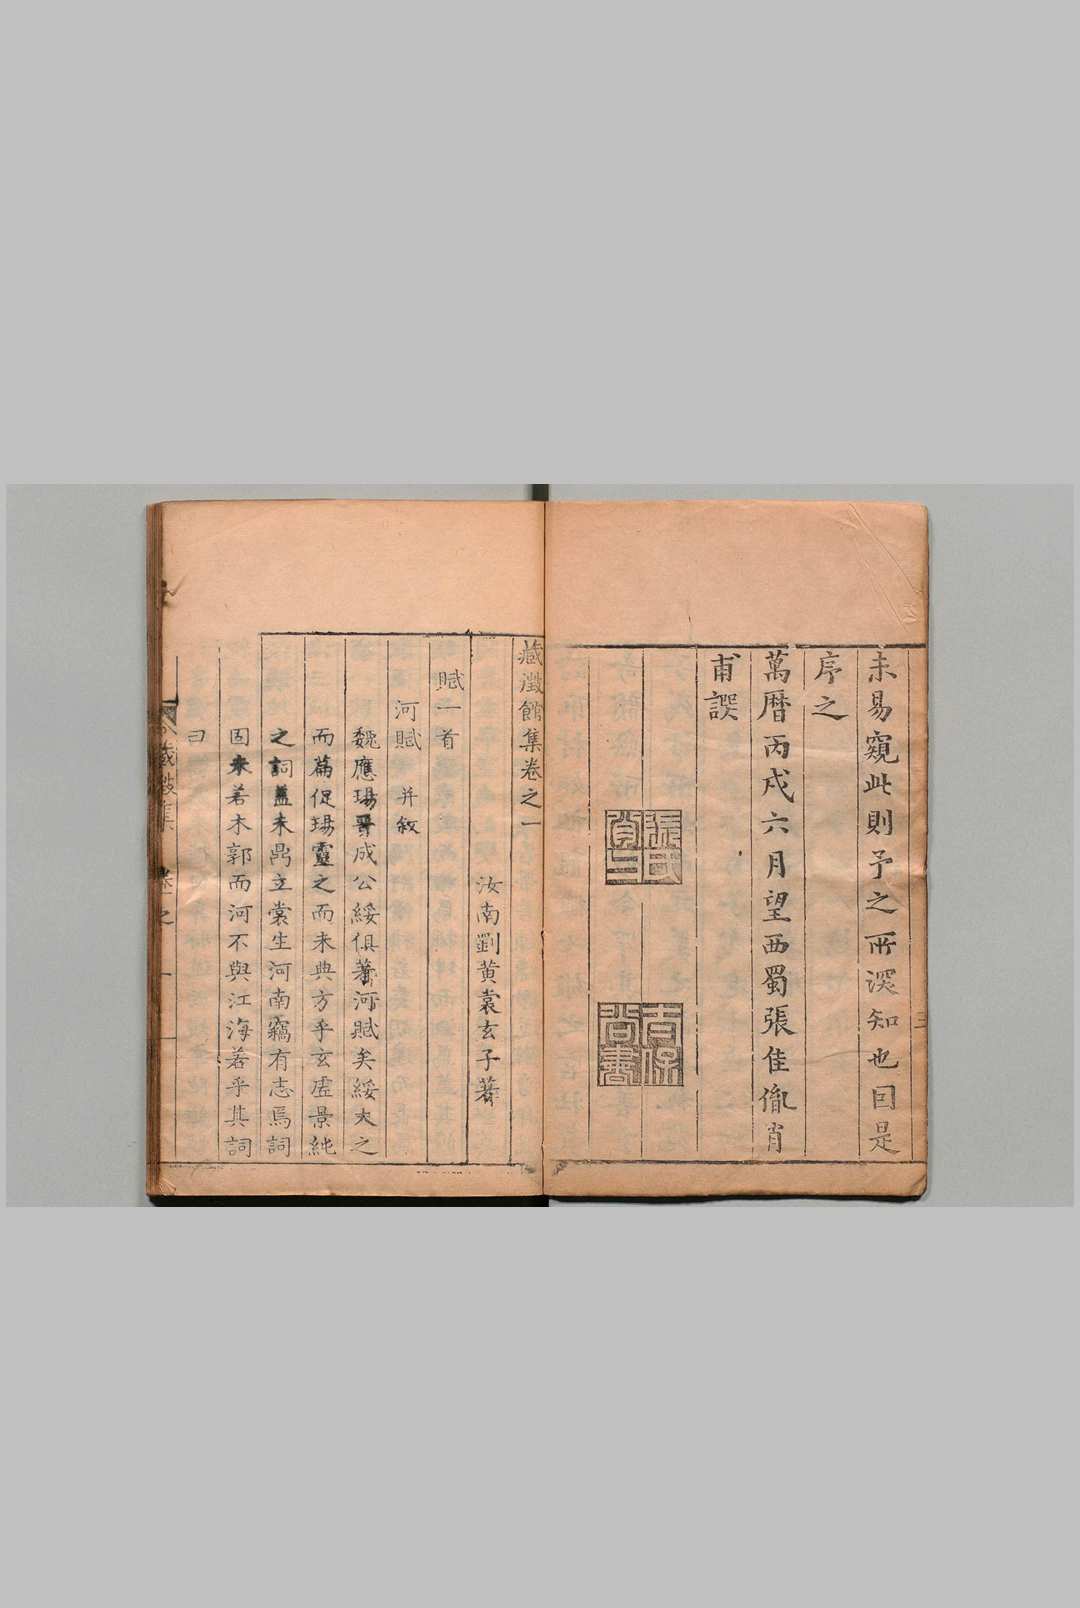 未易窺此則予之所深知也因是
序之
萬曆丙戍六月望西蜀張佳胤肖
甫譔
張氏肖三
古保尚書
藏澂館集卷之一
汝南劉黃裳玄子著
賦一首
河賦 并敘
魏應瑒晉成公綏俱著河賦矣綏夫之
而篇促瑒靈之而未典方乎玄虛景純
之詞蓋未鼎立裳生河南竊有志焉詞
固來若木郭而河不與江海若乎其詞
曰